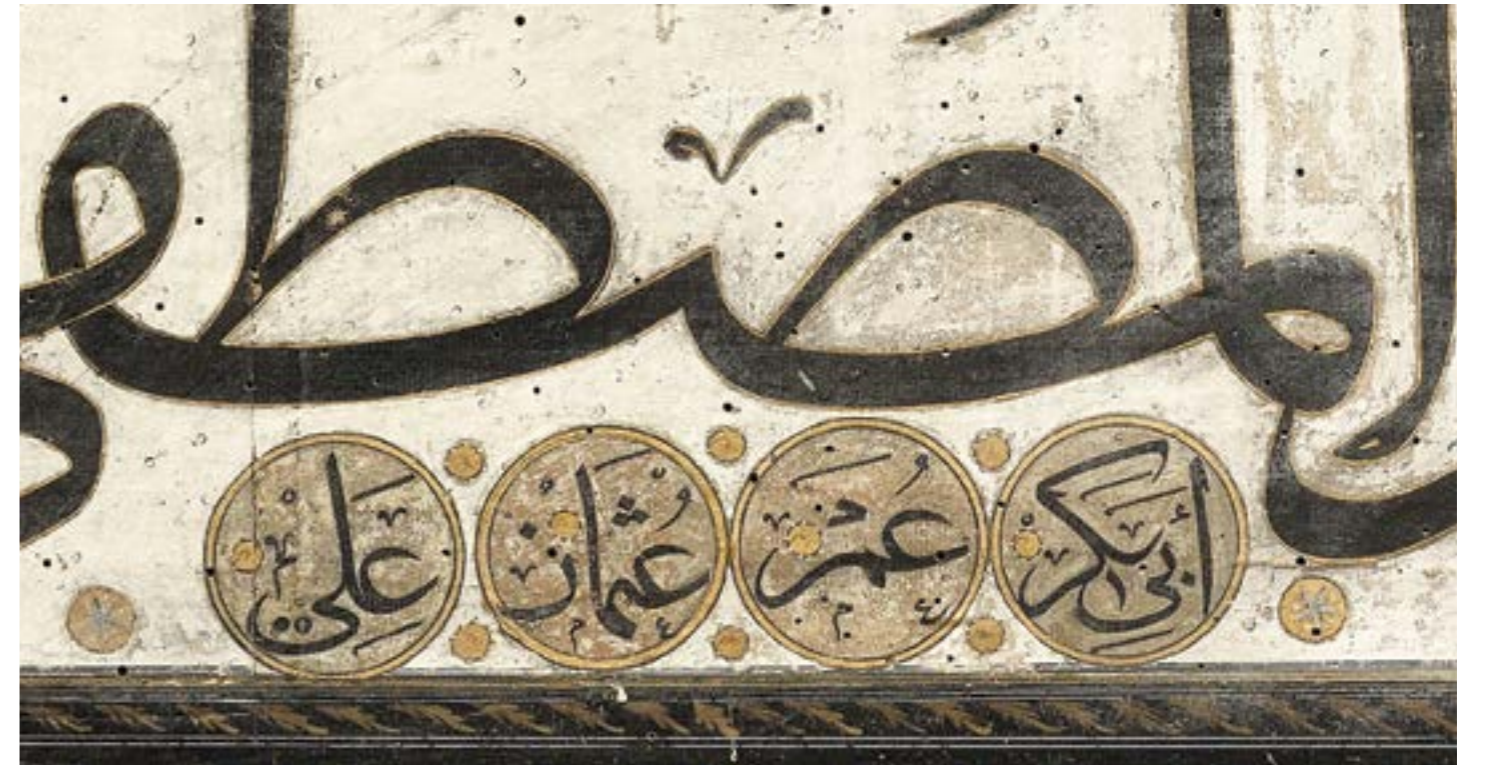 المصطفى
أَبِي بَكْرٍ عُمَرْ عُثْمَانْ عَلِي